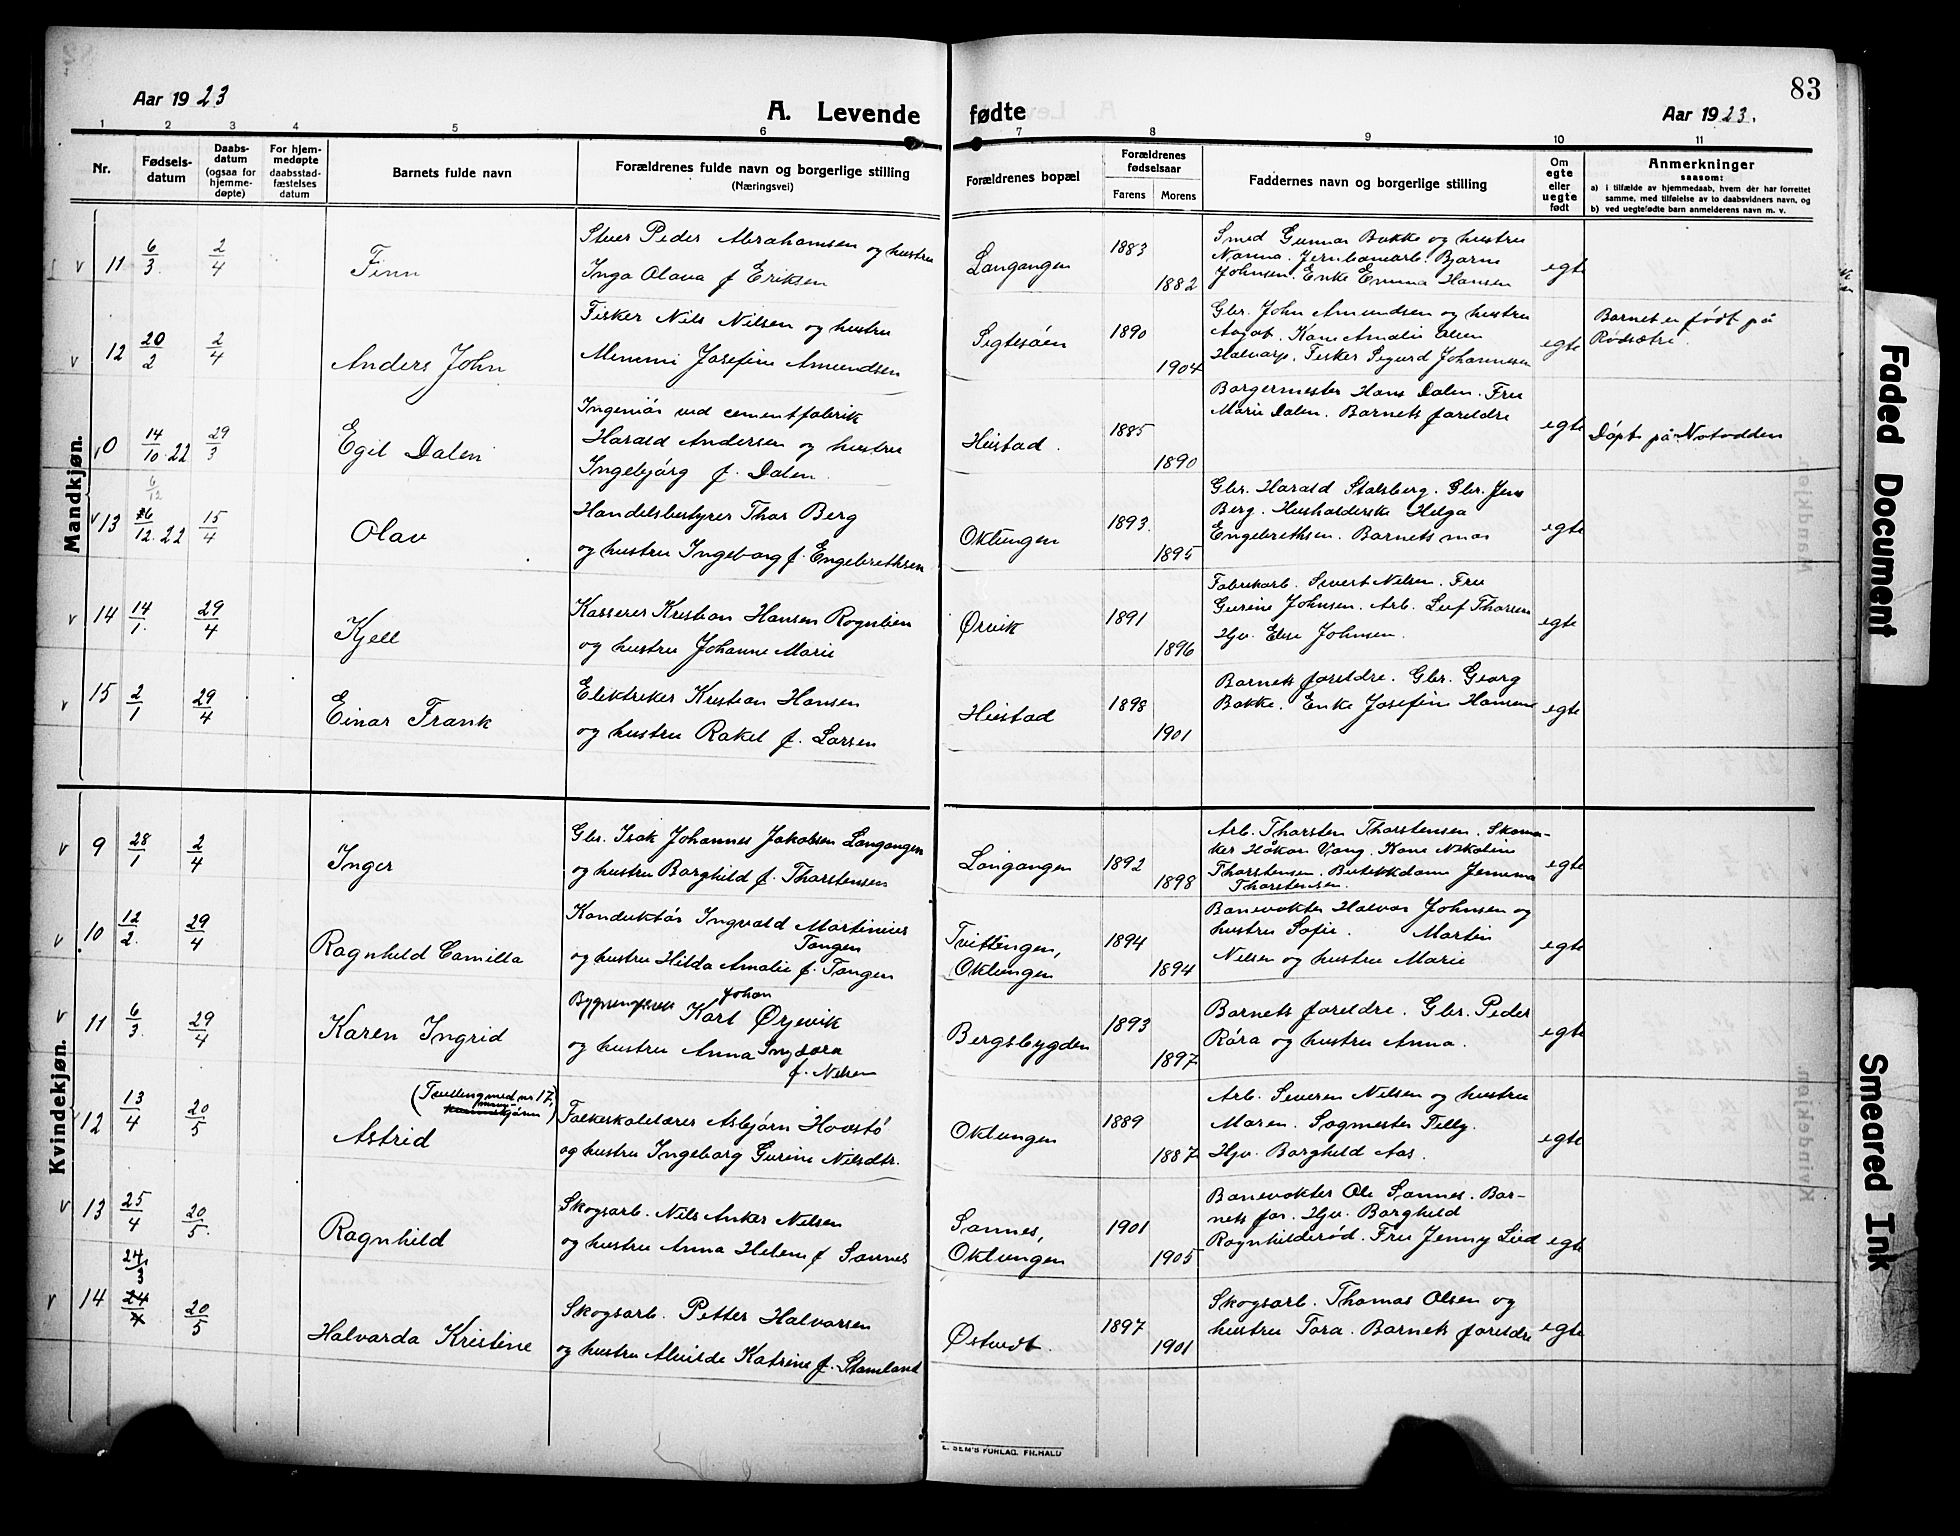 83
Aar 1923
A. Levende fødte
Aar 1923.
1 2 3 4 5 6 7 8 9 10 11
Nr.
Fødsels-
datum
Daabs-
datum
(ogsaa for
hjemme-
døpte)
For hjem-
medøpte
daabsstad-
fæstelses
datum
Barnets fulde navn
Forældrenes fulde navn og borgerlige stilling
(Næringsvei)
Forældrenes bopæl
Forældrenes
fødselsaar
Farens Morens
Faddernes navn og borgerlige stilling
Om
egte
eller
uegte
født
Anmerkninger
saasom:
a) i tilfælde av hjemmedaab, hvem der har forrettet
samme, med tilføielse av to daabsvidners navn, og
b) ved uegtefødte barn anmelderens navn m. v.
Mandkjøn.
v 11 6/3. 2/4
Finn
Stuer Peder Abrahamsen og hustru
Inga Olava f Eriksen
Langangen
1883
1882
Smed Gunnar Bakke og hustru
Nanna. Jernbanearb. Bjarne
Johnsen. Enke Emma Hansen
egte
v 12 20/2 2/4
Anders John
Fisker Nils Nilsen og hustru
Minni Josefine Amundsen
Sigtesøen
1890
1904
Gbr. John Amundsen og hustru
Aagot. Kone Amalie Olsen
Halvarp. Fisker Sigurd Johannesen
egte
Barnet er født på
Rødsætri.
10 14/10.22 29/3
Egil Dalen
Ingeniør ved cementfabrik
Harald Andersen og hustru
Ingebjørg f. Dalen.
Heistad.
1885
1890
Borgermester Hans Dalen. Fru
Marie Dalen. Barnets foreldre
egte
Døpt på Notodden
6/12
v 13 16/12.22 15/4
Olav
Handelsbestyrer Thor Berg
og hustru Ingeborg f. Engebrethsen
Oklungen
1893.
1895
Gbr. Harald Stalsberg. Gbr. Jens
Berg. Husholderske Helga
Engebrethsen. Barnets mor
egte
v 14 14/1. 29/4
Kjell
Kasserer Kristian Hansen Rognlien
og hustru Johanne Marie
Ørvik
1891
1896
Fabrikarb. Sivert Nilsen. Fru
Gurine Johnsen. Arb. Leif Thorsen
Hjv. Else Johnsen.
egte
v 15 2/1 29/4
Einar Frank
Elektriker Kristian Hansen
og hustru Rakel f. Larsen
Heistad
1898
1901
Barnets foreldre. Gbr. Georg
Bakke. Enke Josefine Hansen
egte
Kvindekjøn.
v 9 28/1 2/4
Inger
Gbr. Isak Johannes Jakobsen Langangen
og hustru Borghild f. Thorstensen
Langangen
1892
1898
Arb. Thorsten Thorstensen. Skoma-
ker Håkon Vang. Kone Nikoline
Thorstensen. Butikkdame Jemima
Thorstensen.
egte
v 10 12/2. 29/4
Ragnhild Camilla
Konduktør Ingvald Martinius
Tangen
og hustru Hilda Amalie f. Tangen
Tvittingen,
Oklungen
1894
1894
Banevokter Halvor Johnsen og
hustru Sofie. Martin
Nilsen og hustru Marie
egte
v 11 6/3. 29/4
Karen Ingrid
Johan
Karl Ørjevik
og hustru Anna Ingvara
f. Nilsen
Bergsbygden
1893
1897
Barnets foreldre. Gbr. Peder
Røra og hustru Anna.
egte
v 12 13/4 20/5
(Tvilling med nr 17,
Astrid
Folkeskolelærer Asbjørn Hovstø
og hustru Ingeborg Gurine Nilsdtr.
Oklungen
1889
1887
Arb. Severin Nilsen og hustru
Maren. Sogmester Telly.
Hjv. Borghild Aas.
egte
v 13 25/4 20/5.
Ragnhild
Skogsarb. Nils Anker Nilsen
og hustru Anna Helene f Sannes
Sannes,
Oklungen
1901
1905
Banevokter Ole Sannes. Bar-
nets far. Hjv. Borghild
Rognhilderød. Fru Jenny Lied
egte
24/3
v 14 24/4 20/5
Halvarda Kristine
Skogsarb. Petter Halvorsen
og hustru Alvilde Katrine f. Stamland
Østvedt.
1897
1901
Skogsarb. Thomas Olsen og
hustru Tora. Barnets foreldre
egte
E. SEM'S FORLAG. FR.HALD
Faded Document
Smeared Ink
Mandkjøn.
Kvindekjøn